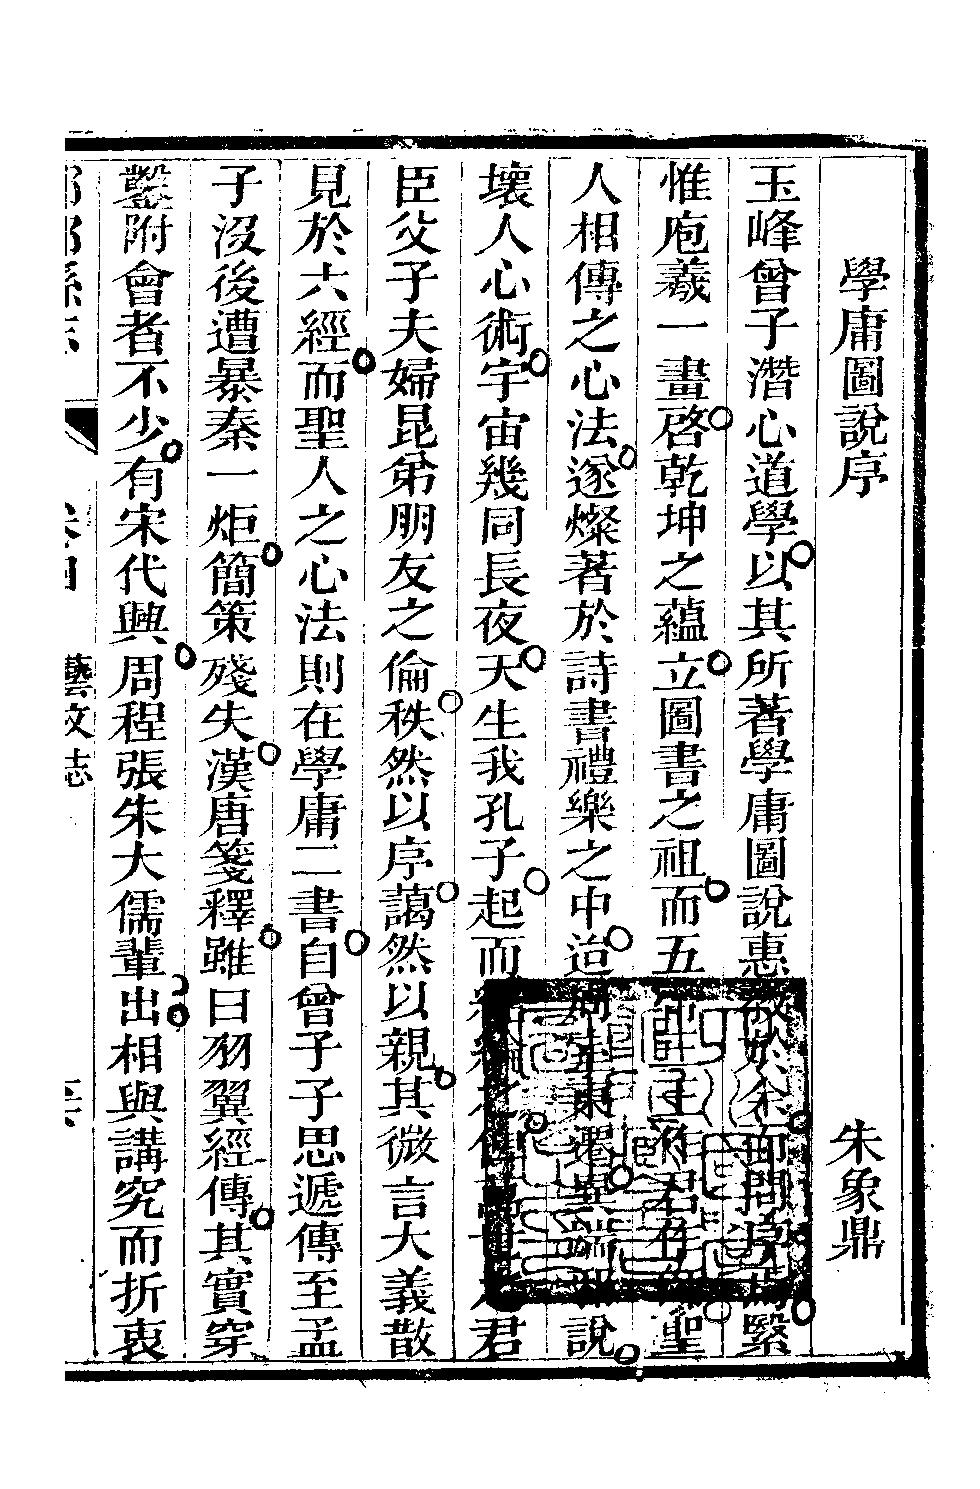 學庸圖說序
朱象鼎
玉峰曾子潛心道學以其所著學庸圖說惠於余問緊
惟庖羲一畫啓乾坤之蘊立圖書之祖而五作君作聖
人相傳之心法遂燦著於詩書禮樂之中迨周室東遷異端邪說
壞人心術宇宙幾同長夜天生我孔子起而君
臣父子夫婦昆弟朋友之倫秩然以序藹然以親其微言大義散
見於六經而聖人之心法則在學庸二書自曾子子思遞傳至孟
子沒後遭暴秦一炬簡策殘失漢唐箋釋雖曰羽翼經傳其實穿
鑿附會者不少有宋代興周程張朱大儒輩出相與講究而折衷
藝文志